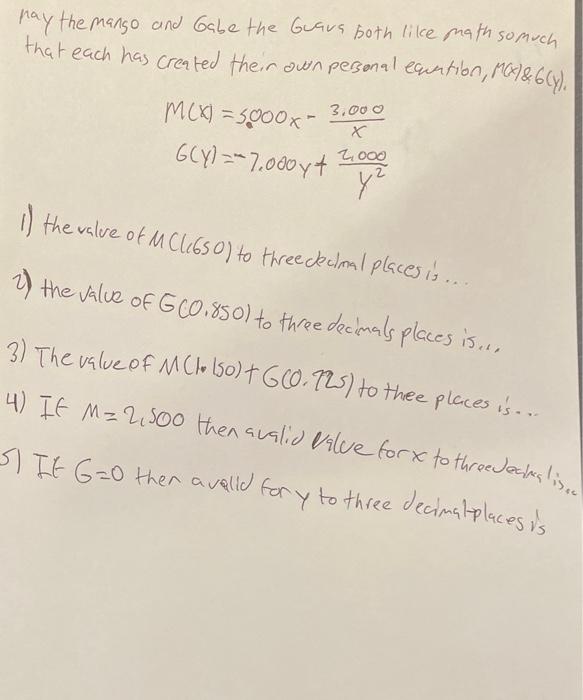 May the mango and Gabe the Guava both like math so much
that each has created their own personal equation, M(x) & G(y).
M(x) = 5.000x - 3.000/x
G(y) = -7.000y + 2.000/y²
1) the value of M(1.650) to three decimal places is...
2) the value of G(0.850) to three decimals places is...
3) The value of M(1.150) + G(0.725) to thee places is...
4) If M = 2.500 then a valid value for x to three decimal is...
5) If G=0 then a valid for y to three decimal places is